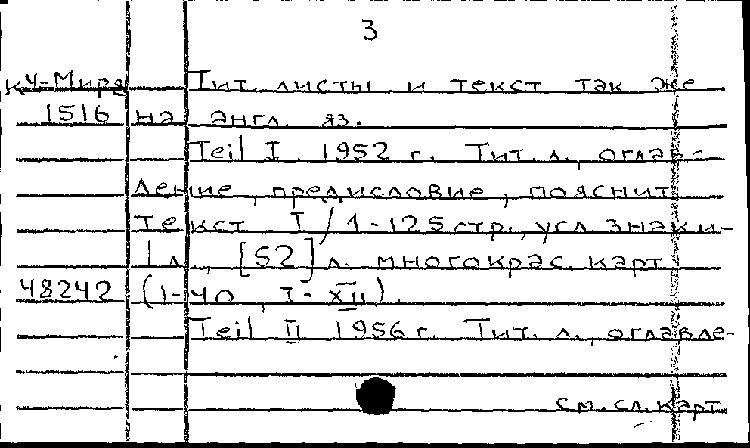 3
кч-Мира Тит. листы и текст так же
1516 на англ. яз.
Teil I 1952 г. Тит. л., оглав-
ление, предисловие, пояснит
текст I/1-125 стр., усл. знаки-
1 л., [52] л. многокрас. карт
48242 (1-40, I-XII).
Teil II 1956 г. Тит. л., оглавле-
см. сл. карт.